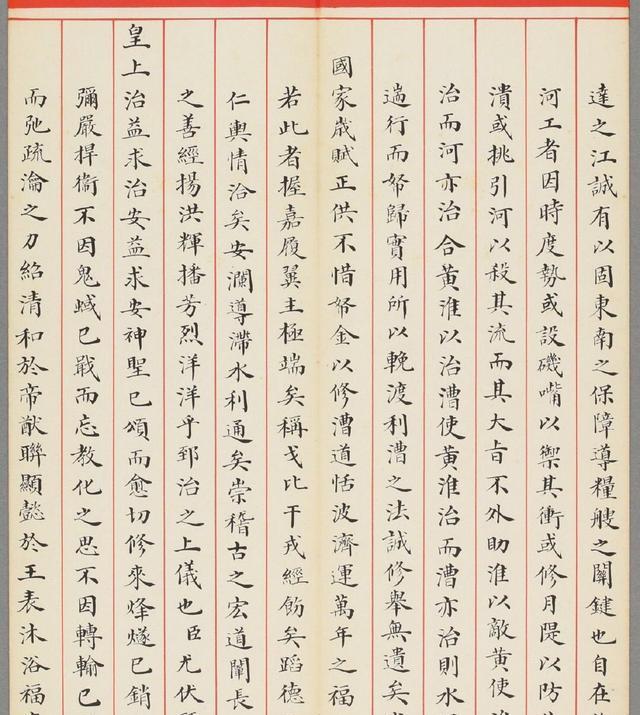 達之江誠有以固東南之保障導糧艘之關鍵也自在
河工者因時度勢或設磯嘴以禦其衝或修月隄以防
潰或挑引河以殺其流而其大旨不外助淮以敵黃使
治而河亦治合黃淮以治漕使黃淮治而漕亦治則水
遄行而帑歸實用所以輓渡利漕之法誠修舉無遺矣
國家歲賦正供不惜帑金以修漕道恬波濟運萬年之福
若此者握嘉履翼主極端矣稱戈比干戎經飭矣蹈德
仁輿情洽矣安瀾導滯水利通矣崇稽古之宏道闡長
之善經揚洪輝播芳烈洋洋乎郅治之上儀也臣尤伏
皇上治益求治安益求安神聖已頌而愈切修來烽燧已銷
彌嚴捍衞不因鬼蜮已戢而忘教化之思不因轉輸已
而弛疏瀹之力紹清和於帝猷聯顯懿於王表沐浴福